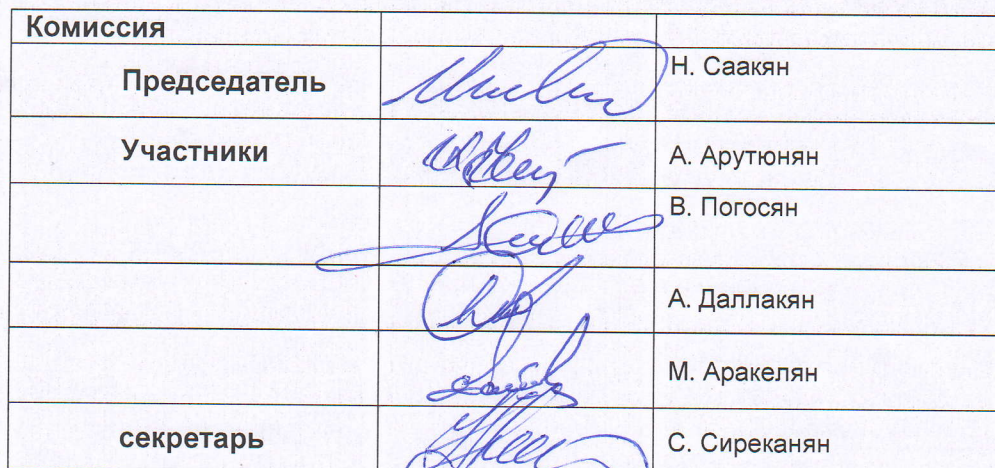 Комиссия
Председатель Н. Саакян
Участники А. Арутюнян
В. Погосян
А. Даллакян
М. Аракелян
секретарь С. Сиреканян